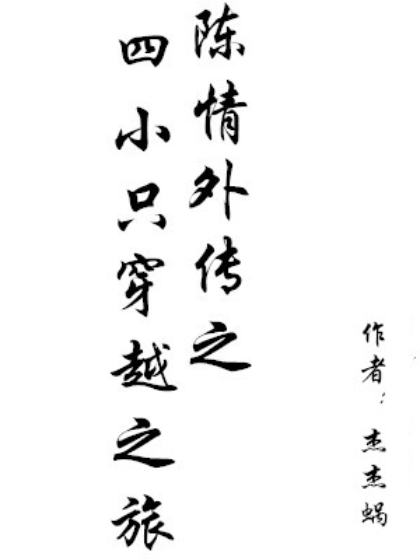 陈情外传之
四小只穿越之旅
作者：杰杰蜗